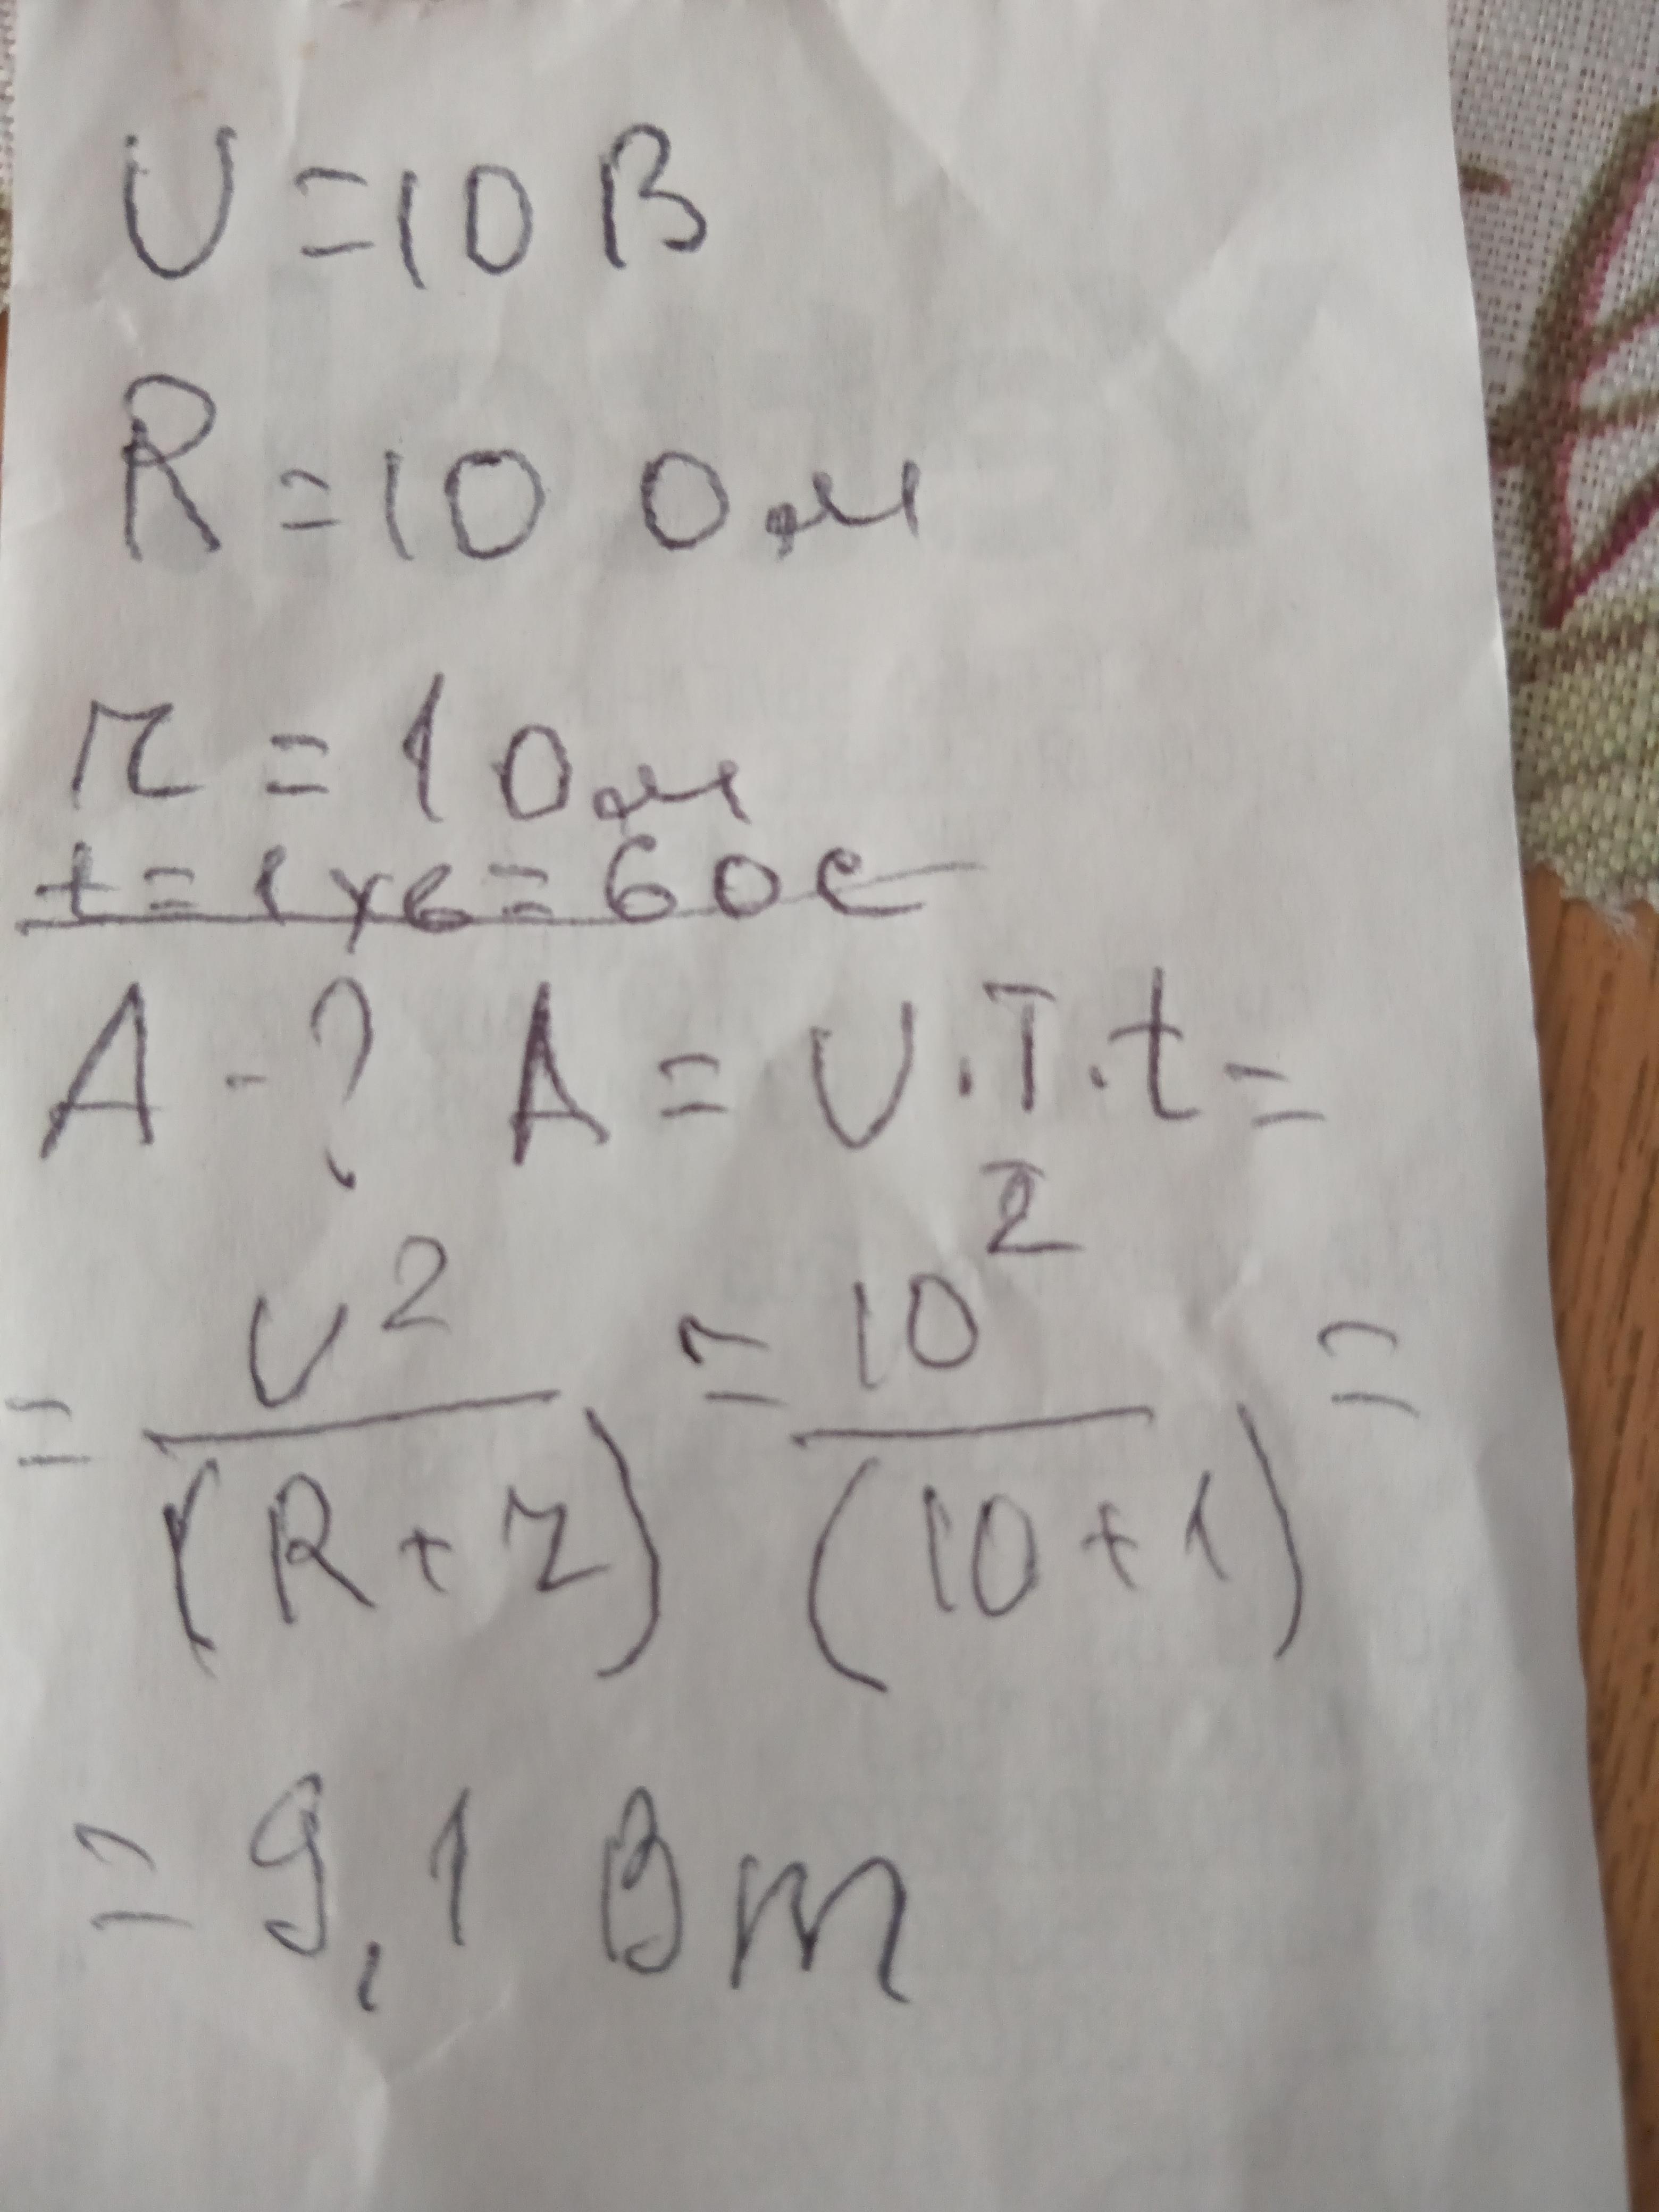 U = 10 В
R = 10 Ом
r = 1 Ом
t = 1 хв = 60 с
A - ? A = U · I · t =
= U² / (R + r) = 10² / (10 + 1) =
= 9,1 Вт